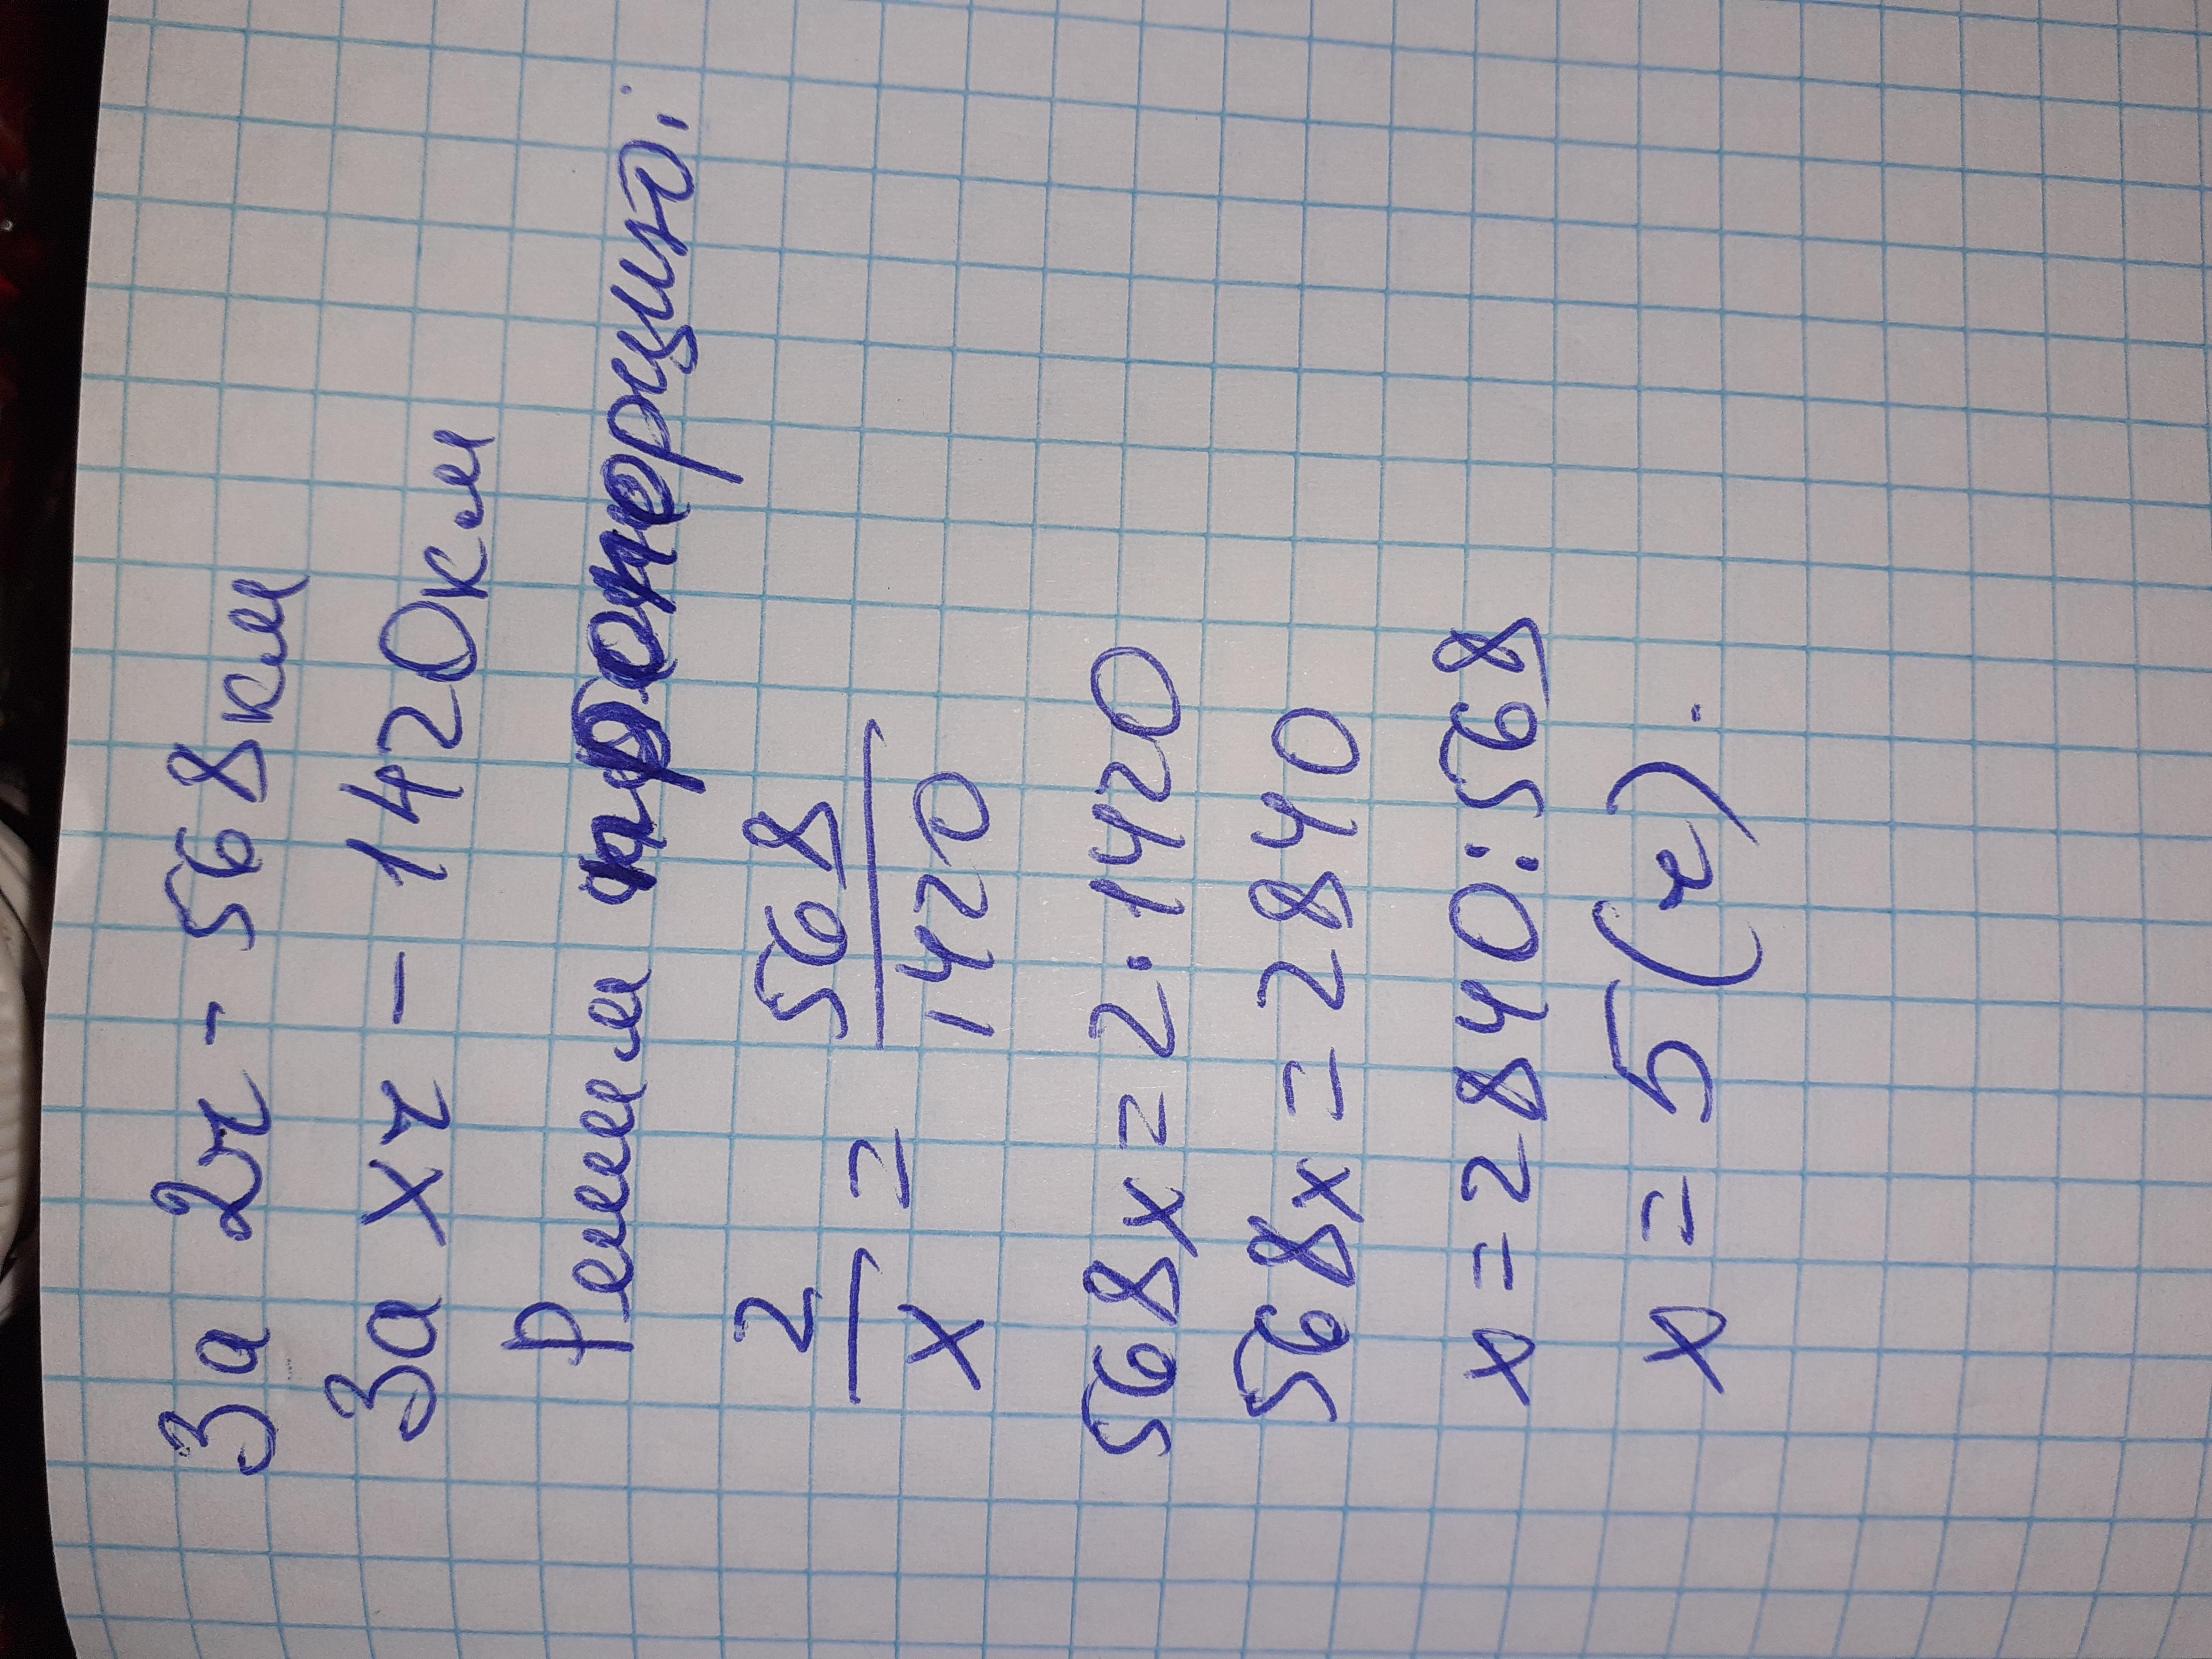 За 2ч - 568км
За хч - 1420км
Решим пропорцию:
2/х = 568/1420
568х = 2·1420
568х = 2840
х = 2840:568
х = 5(ч).